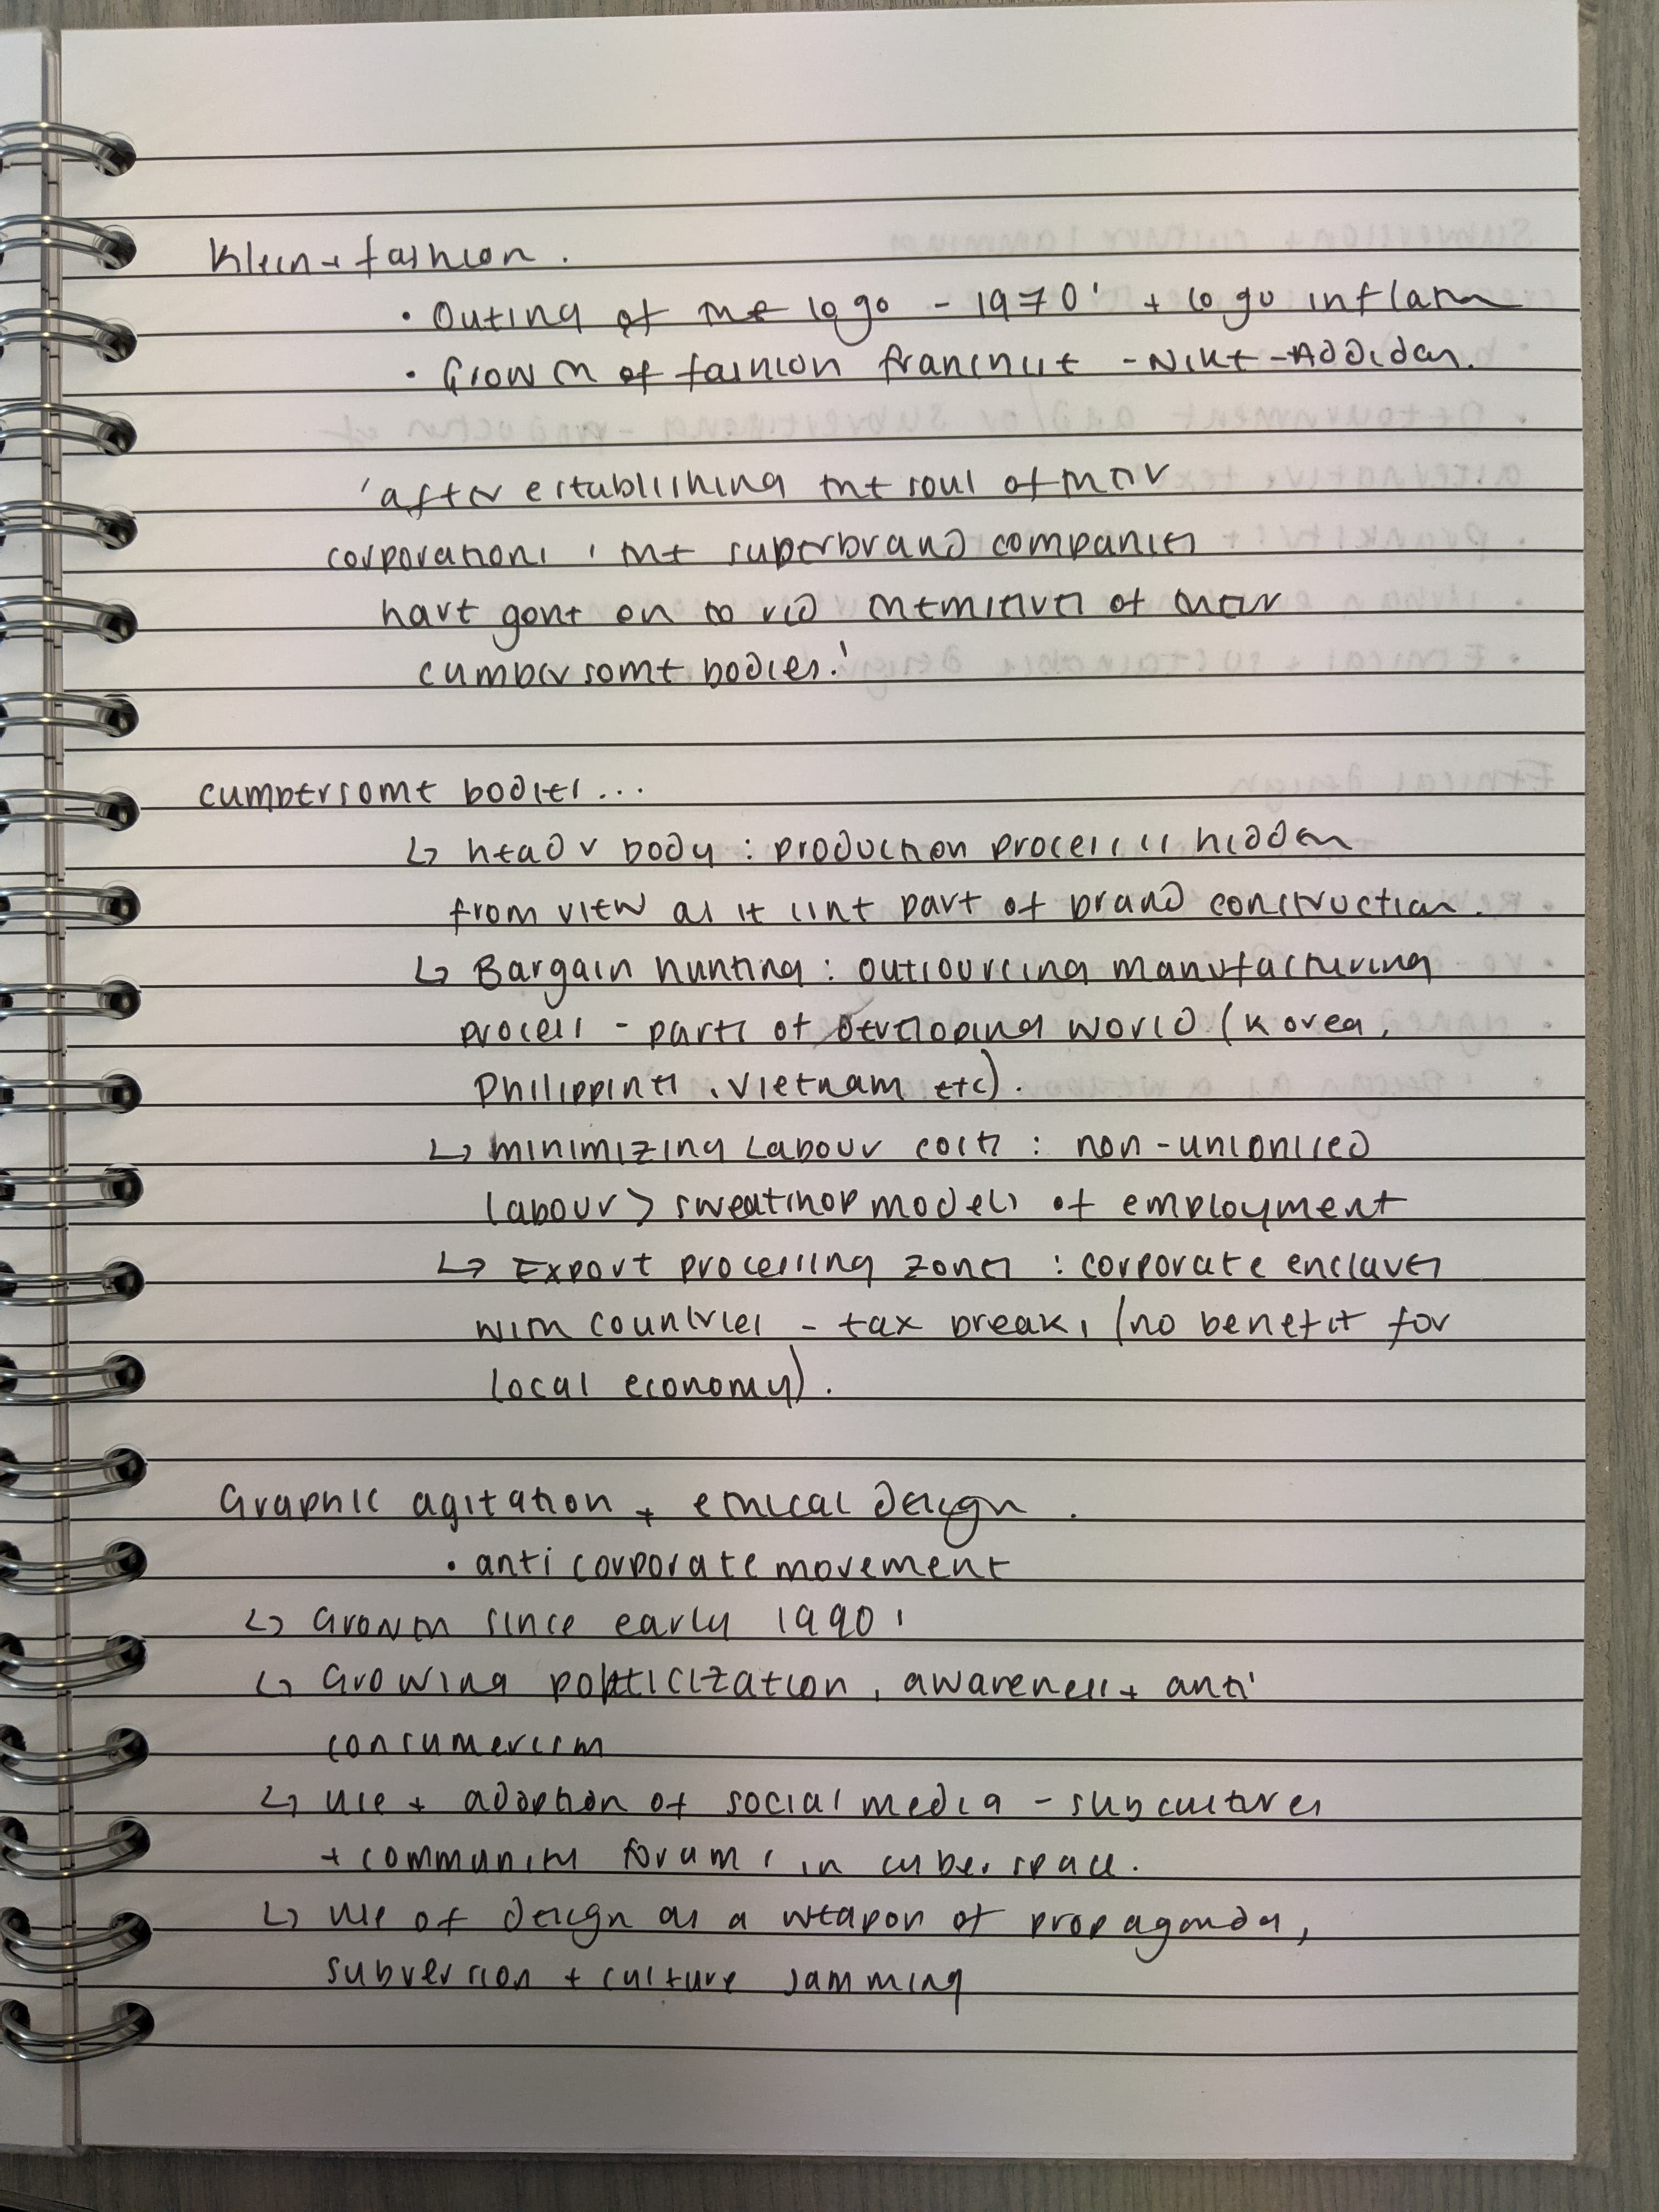 Klein + fashion.
• Outing of the logo - 1970's + logo inflation
• Growth of fashion franchise - Nike - Addidas.
'after establishing the soul of their
corporations, the superbrand companies
have gone on to rid themselves of their
cumbersome bodies.'
cumbersome bodies...
↳ head v body : production process is hidden
from view as it isnt part of brand construction.
↳ Bargain hunting : outsourcing manufacturing
process - parts of developing world (Korea,
Philippines, Vietnam etc).
↳ minimizing Labour costs : non-unionised
labour > sweatshop models of employment
↳ Export processing zones : corporate enclaves
with countries - tax breaks (no benefit for
local economy).
Graphic agitation + ethical design.
• anti corporate movement
↳ Growth since early 1990s
↳ Growing politicization, awareness + anti
consumerism
↳ use + adoption of social media - subcultures
+ community forums in cyberspace.
↳ use of design as a weapon of propaganda,
subversion + culture jamming